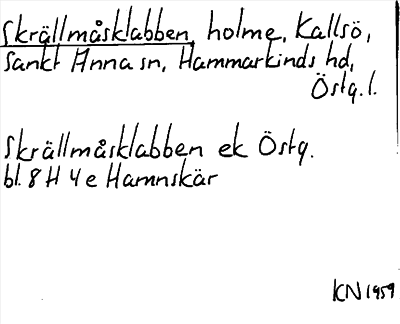 Skrällmåsklabben, holme, Kallsö,
Sankt Anna sn, Hammarkinds hd,
Östg. l.
Skrällmåsklabben ek Östg.
bl. 8 H 4 e Hamnskär
KN 1959